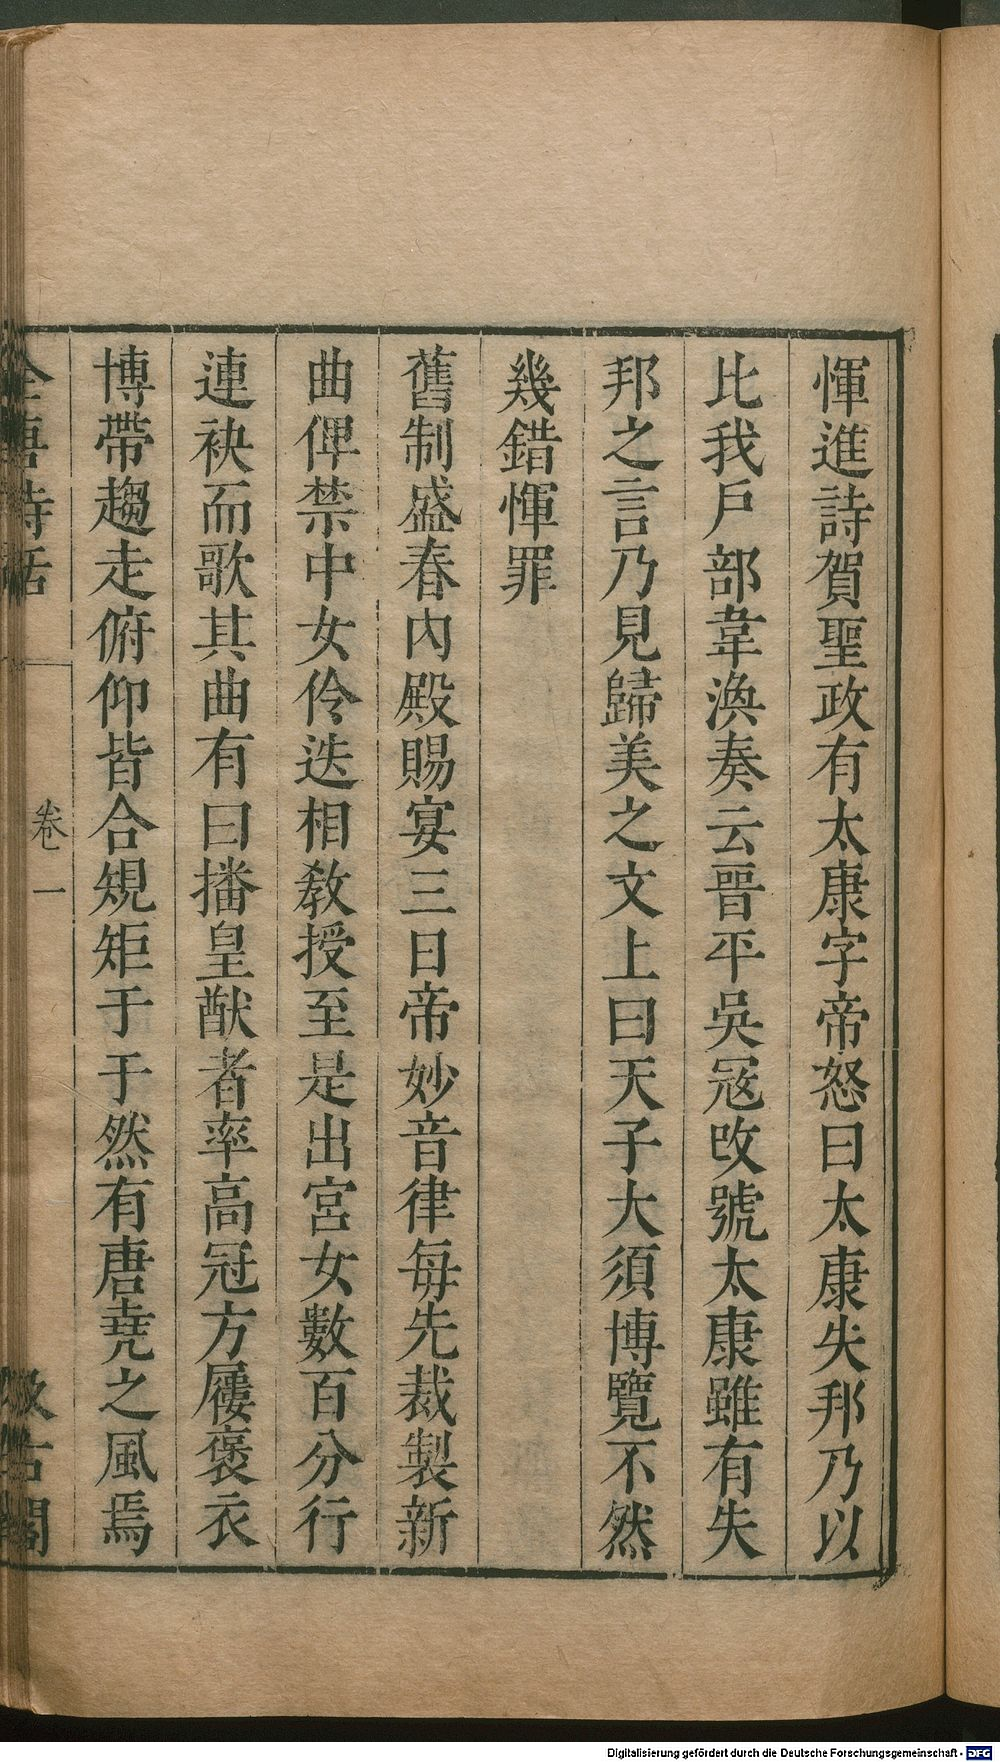 惲進詩賀聖政有太康字帝怒曰太康失邦乃以
比我戶部韋渙奏云晉平吳冦攺號太康雖有失
邦之言乃見歸美之文上曰天子大須博覽不然
幾錯惲罪
舊制盛春內殿賜宴三日帝妙音律每先裁製新
曲俾禁中女伶迭相教授至是出宮女數百分行
連袂而歌其曲有曰播皇猷者率高冠方屨褒衣
博帶趨走俯仰皆合規矩于于然有唐堯之風焉
全唐詩話
卷一
汲古閣
Digitalisierung gefördert durch die Deutsche Forschungsgemeinschaft - DFG